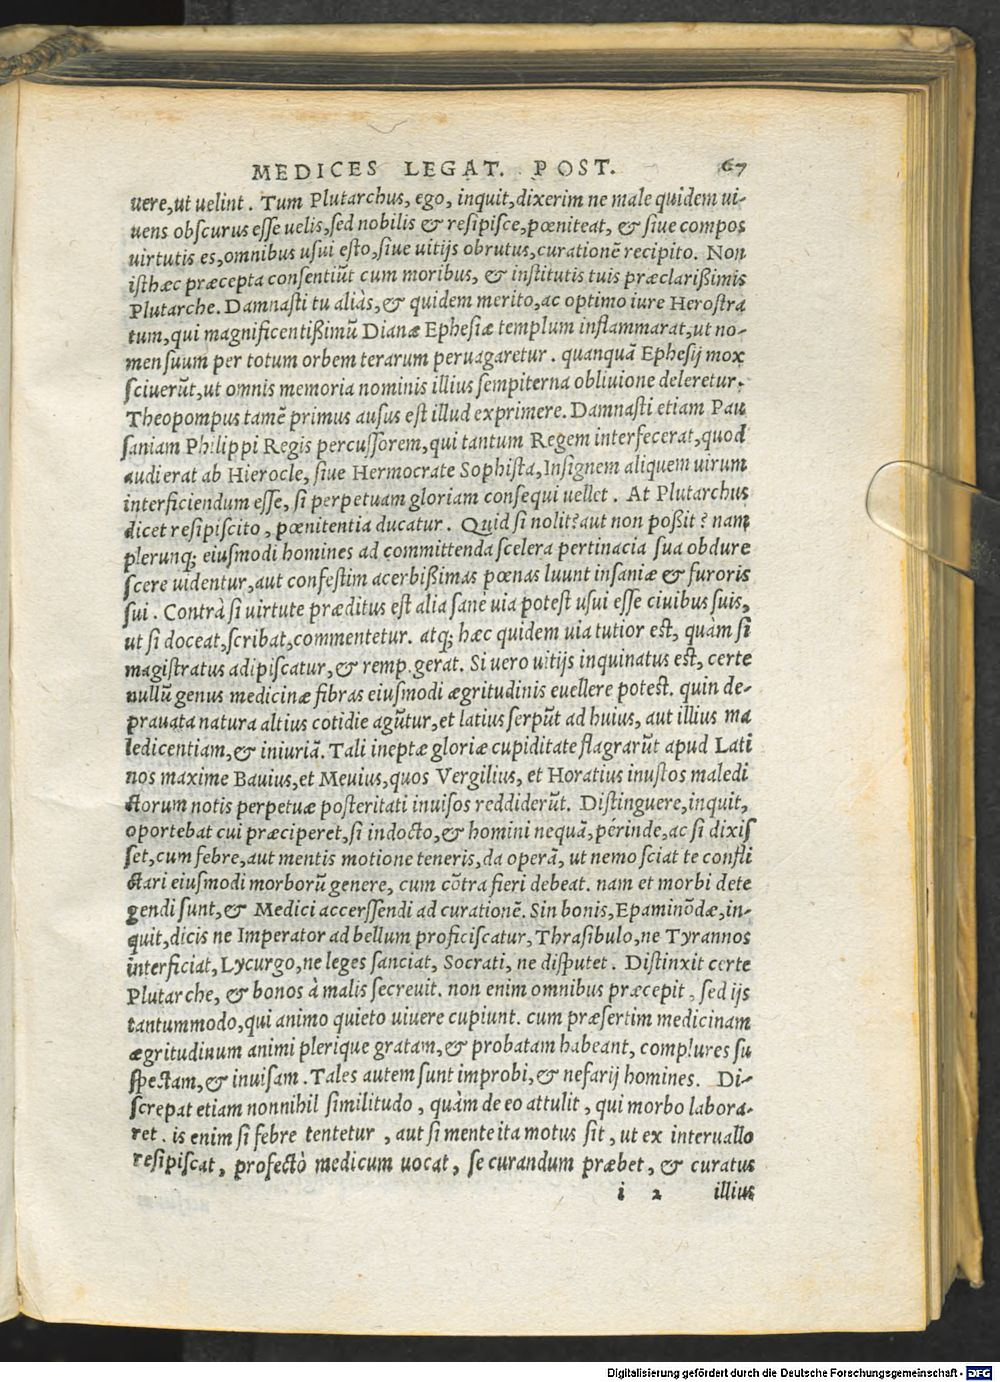 MEDICES LEGAT. POST. 67
uere, ut uelint. Tum Plutarchus, ego, inquit, dixerim ne male quidem ui-
uens obscurus esse uelis, sed nobilis & resipisce, pœniteat, & siue compos
uirtutis es, omnibus usui esto, siue uitijs obrutus, curationē recipito. Non
isthæc præcepta consentiūt cum moribus, & institutis tuis præclarißimis
Plutarche. Damnasti tu aliàs, & quidem merito, ac optimo iure Herostra
tum, qui magnificentißimū Dianæ Ephesiæ templum inflammarat, ut no-
men suum per totum orbem terarum peruagaretur. quanquā Ephesij mox
sciuerūt, ut omnis memoria nominis illius sempiterna obliuione deleretur.
Theopompus tamē primus ausus est illud exprimere. Damnasti etiam Pau
saniam Philippi Regis percussorem, qui tantum Regem interfecerat, quod
audierat ab Hierocle, siue Hermocrate Sophista, Insignem aliquem uirum
interficiendum esse, si perpetuam gloriam consequi uellet. At Plutarchus
dicet resipiscito, pœnitentia ducatur. Quid si nolit? aut non poßit? nam
plerunq; eiusmodi homines ad committenda scelera pertinacia sua obdure
scere uidentur, aut confestim acerbißimas pœnas luunt insaniæ & furoris
sui. Contrà si uirtute præditus est alia sanè uia potest usui esse ciuibus suis,
ut si doceat, scribat, commentetur. atq; hæc quidem uia tutior est, quàm si
magistratus adipiscatur, & remp. gerat. Si uero uitijs inquinatus est, certe
nullū genus medicinæ fibras eiusmodi ægritudinis euellere potest. quin de-
prauata natura altius cotidie agūtur, et latius serpūt ad huius, aut illius ma
ledicentiam, & iniuriā. Tali ineptæ gloriæ cupiditate flagrarūt apud Lati
nos maxime Bauius, et Meuius, quos Vergilius, et Horatius inustos maledi
ctorum notis perpetuæ posteritati inuisos reddiderūt. Distinguere, inquit,
oportebat cui præciperet, si indocto, & homini nequā, périnde, ac si dixis
set, cum febre, aut mentis motione teneris, da operā, ut nemo sciat te confli
ctari eiusmodi morborū genere, cum cōtra fieri debeat. nam et morbi dete
gendi sunt, & Medici accerssendi ad curationē. Sin bonis, Epaminōdæ, in-
quit, dicis ne Imperator ad bellum proficiscatur, Thrasibulo, ne Tyrannos
interficiat, Lycurgo, ne leges sanciat, Socrati, ne disputet. Distinxit certe
Plutarche, & bonos à malis secreuit. non enim omnibus præcepit, sed ijs
tantummodo, qui animo quieto uiuere cupiunt. cum præsertim medicinam
ægritudinum animi plerique gratam, & probatam habeant, complures su
spectam, & inuisam. Tales autem sunt improbi, & nefarij homines. Di-
screpat etiam nonnihil similitudo, quàm de eo attulit, qui morbo labora-
ret. is enim si febre tentetur, aut si mente ita motus sit, ut ex interuallo
resipiscat, profectò medicum uocat, se curandum præbet, & curatus
i 2 illius
Digitalisierung gefördert durch die Deutsche Forschungsgemeinschaft - DFG